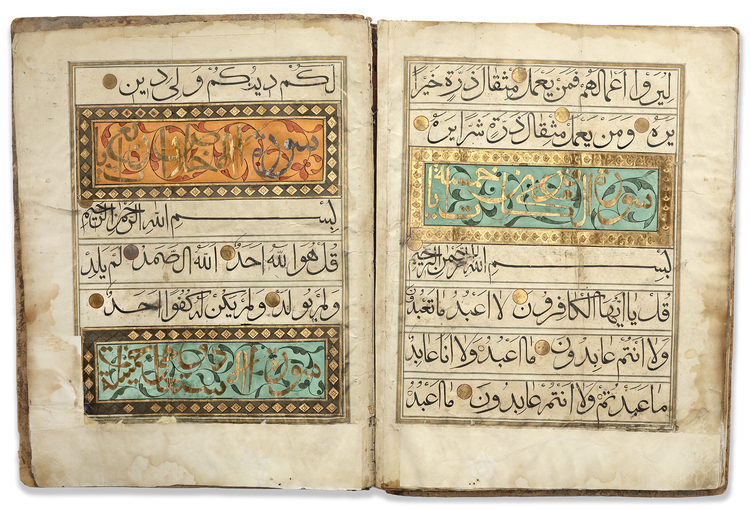 ليروا اعمالهم فمن يعمل مثقال ذرة خيرا
يره ومن يعمل مثقال ذرة شرا يره
سورة
بسم الله الرحمن الرحيم
قل يا ايها الكافرون لا اعبد ما تعبدون
ولا انتم عابدون ما اعبد ولا انا عابد
ما عبدتم ولا انتم عابدون ما اعبد
لكم دينكم ولي دين
سورة الاخلاص
بسم الله الرحمن الرحيم
قل هو الله احد الله الصمد لم يلد
ولم يولد ولم يكن له كفوا احد
سورة